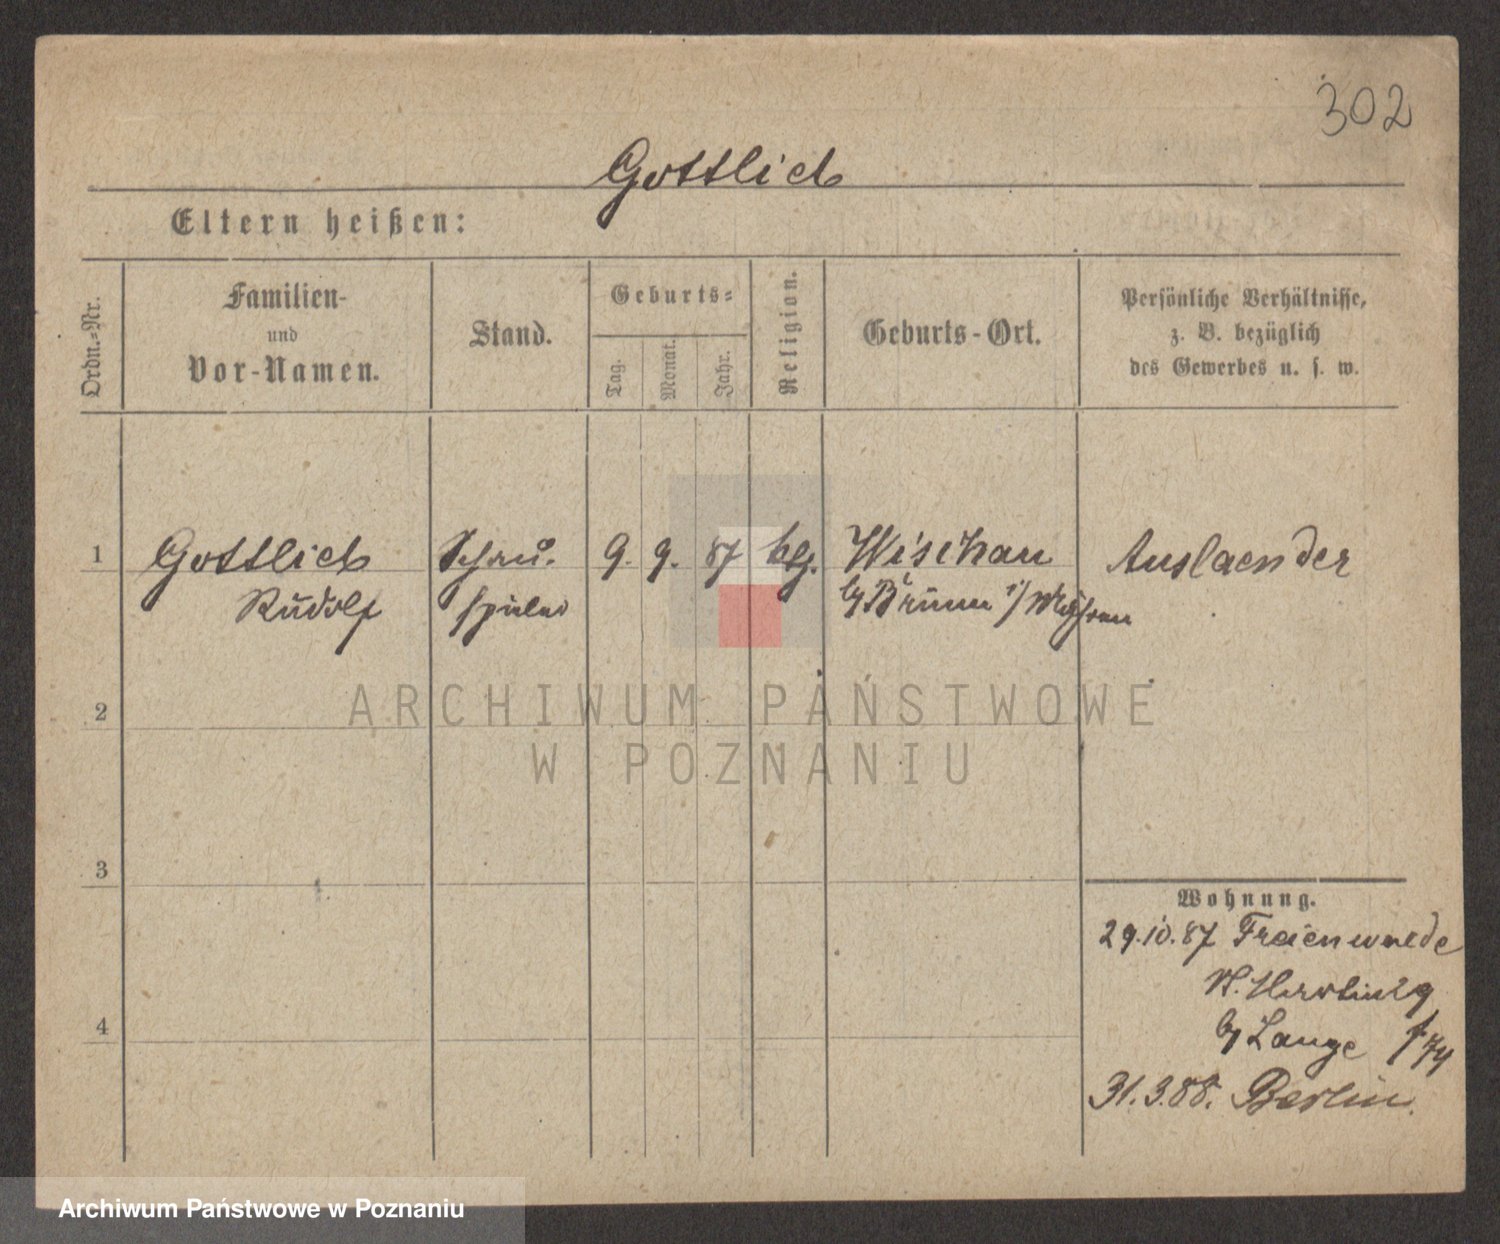 302
Gottlieb
Eltern heißen:
Ordn.-Nr.
Familien-
und
Vor-Namen.
Stand.
Geburts-
Tag.
Monat.
Jahr.
Religion.
Geburts-Ort.
Persönliche Verhältnisse,
z. B. bezüglich
des Gewerbes u. s. w.
1
Gottlieb
Rudolf
Schau-
spieler
9. 9. 87
Wischau
b/ Brünn i/ Mähren
Auslaender
2
3
4
Wohnung.
29.10.87 Freienwalde
b/ Lange
31.3.88. Berlin.
ARCHIWUM PAŃSTWOWE
W POZNANIU
Archiwum Państwowe w Poznaniu